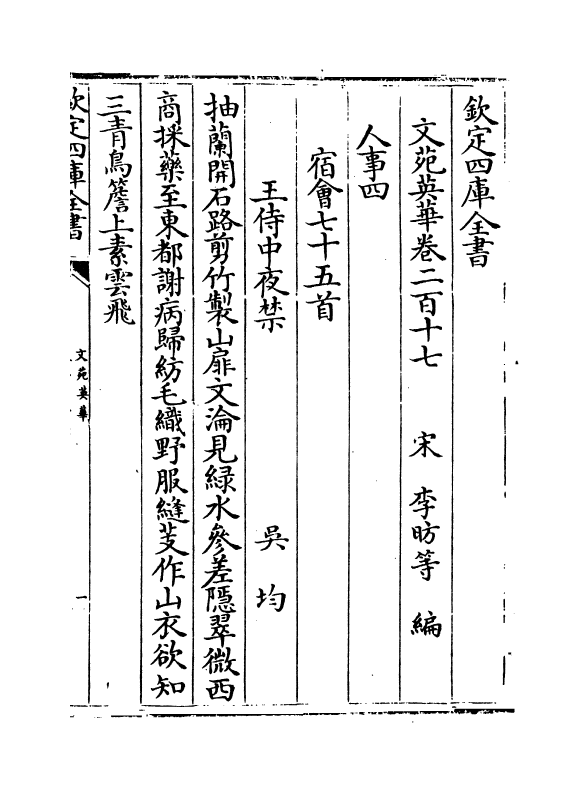 欽定四庫全書
文苑英華卷二百十七 宋 李昉等 編
人事四
宿會七十五首
王侍中夜禁 吳均
抽蘭開石路剪竹製山扉文淪見緑水參差隱翠微西
商採藥至東都謝病歸紡毛織野服縫芰作山衣欲知
三青鳥簷上素雲飛
欽定四庫全書
文苑英華
一